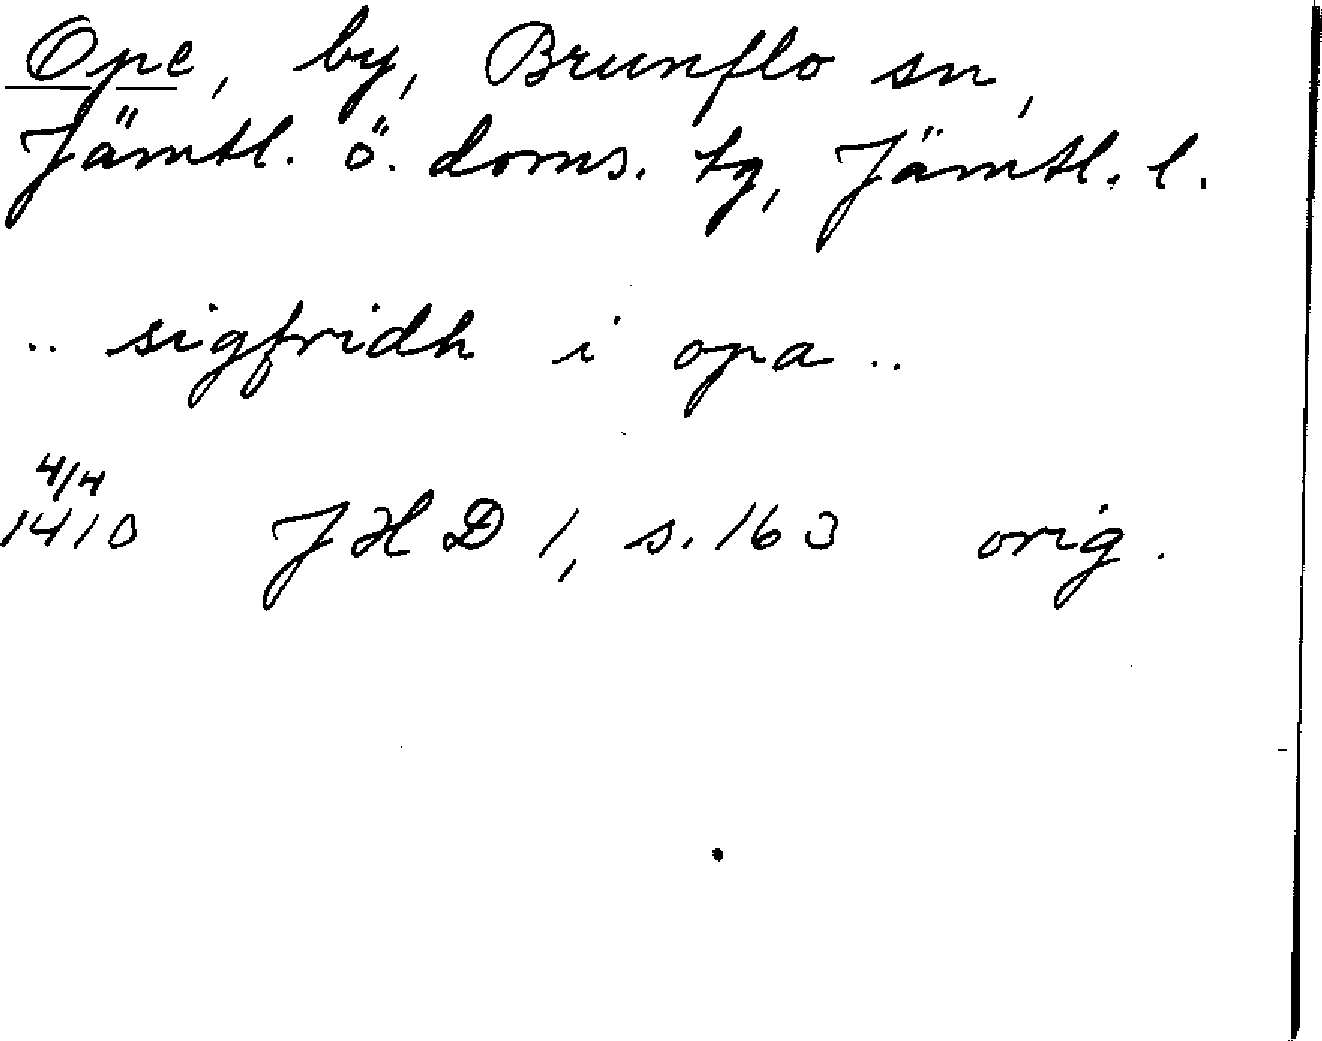 Ope, by, Brunflo sn,
Jämtl. ö. doms. tg, Jämtl. l.
.. sigfridh i opa ..
4/4
1410 JHD 1, s. 163 orig.